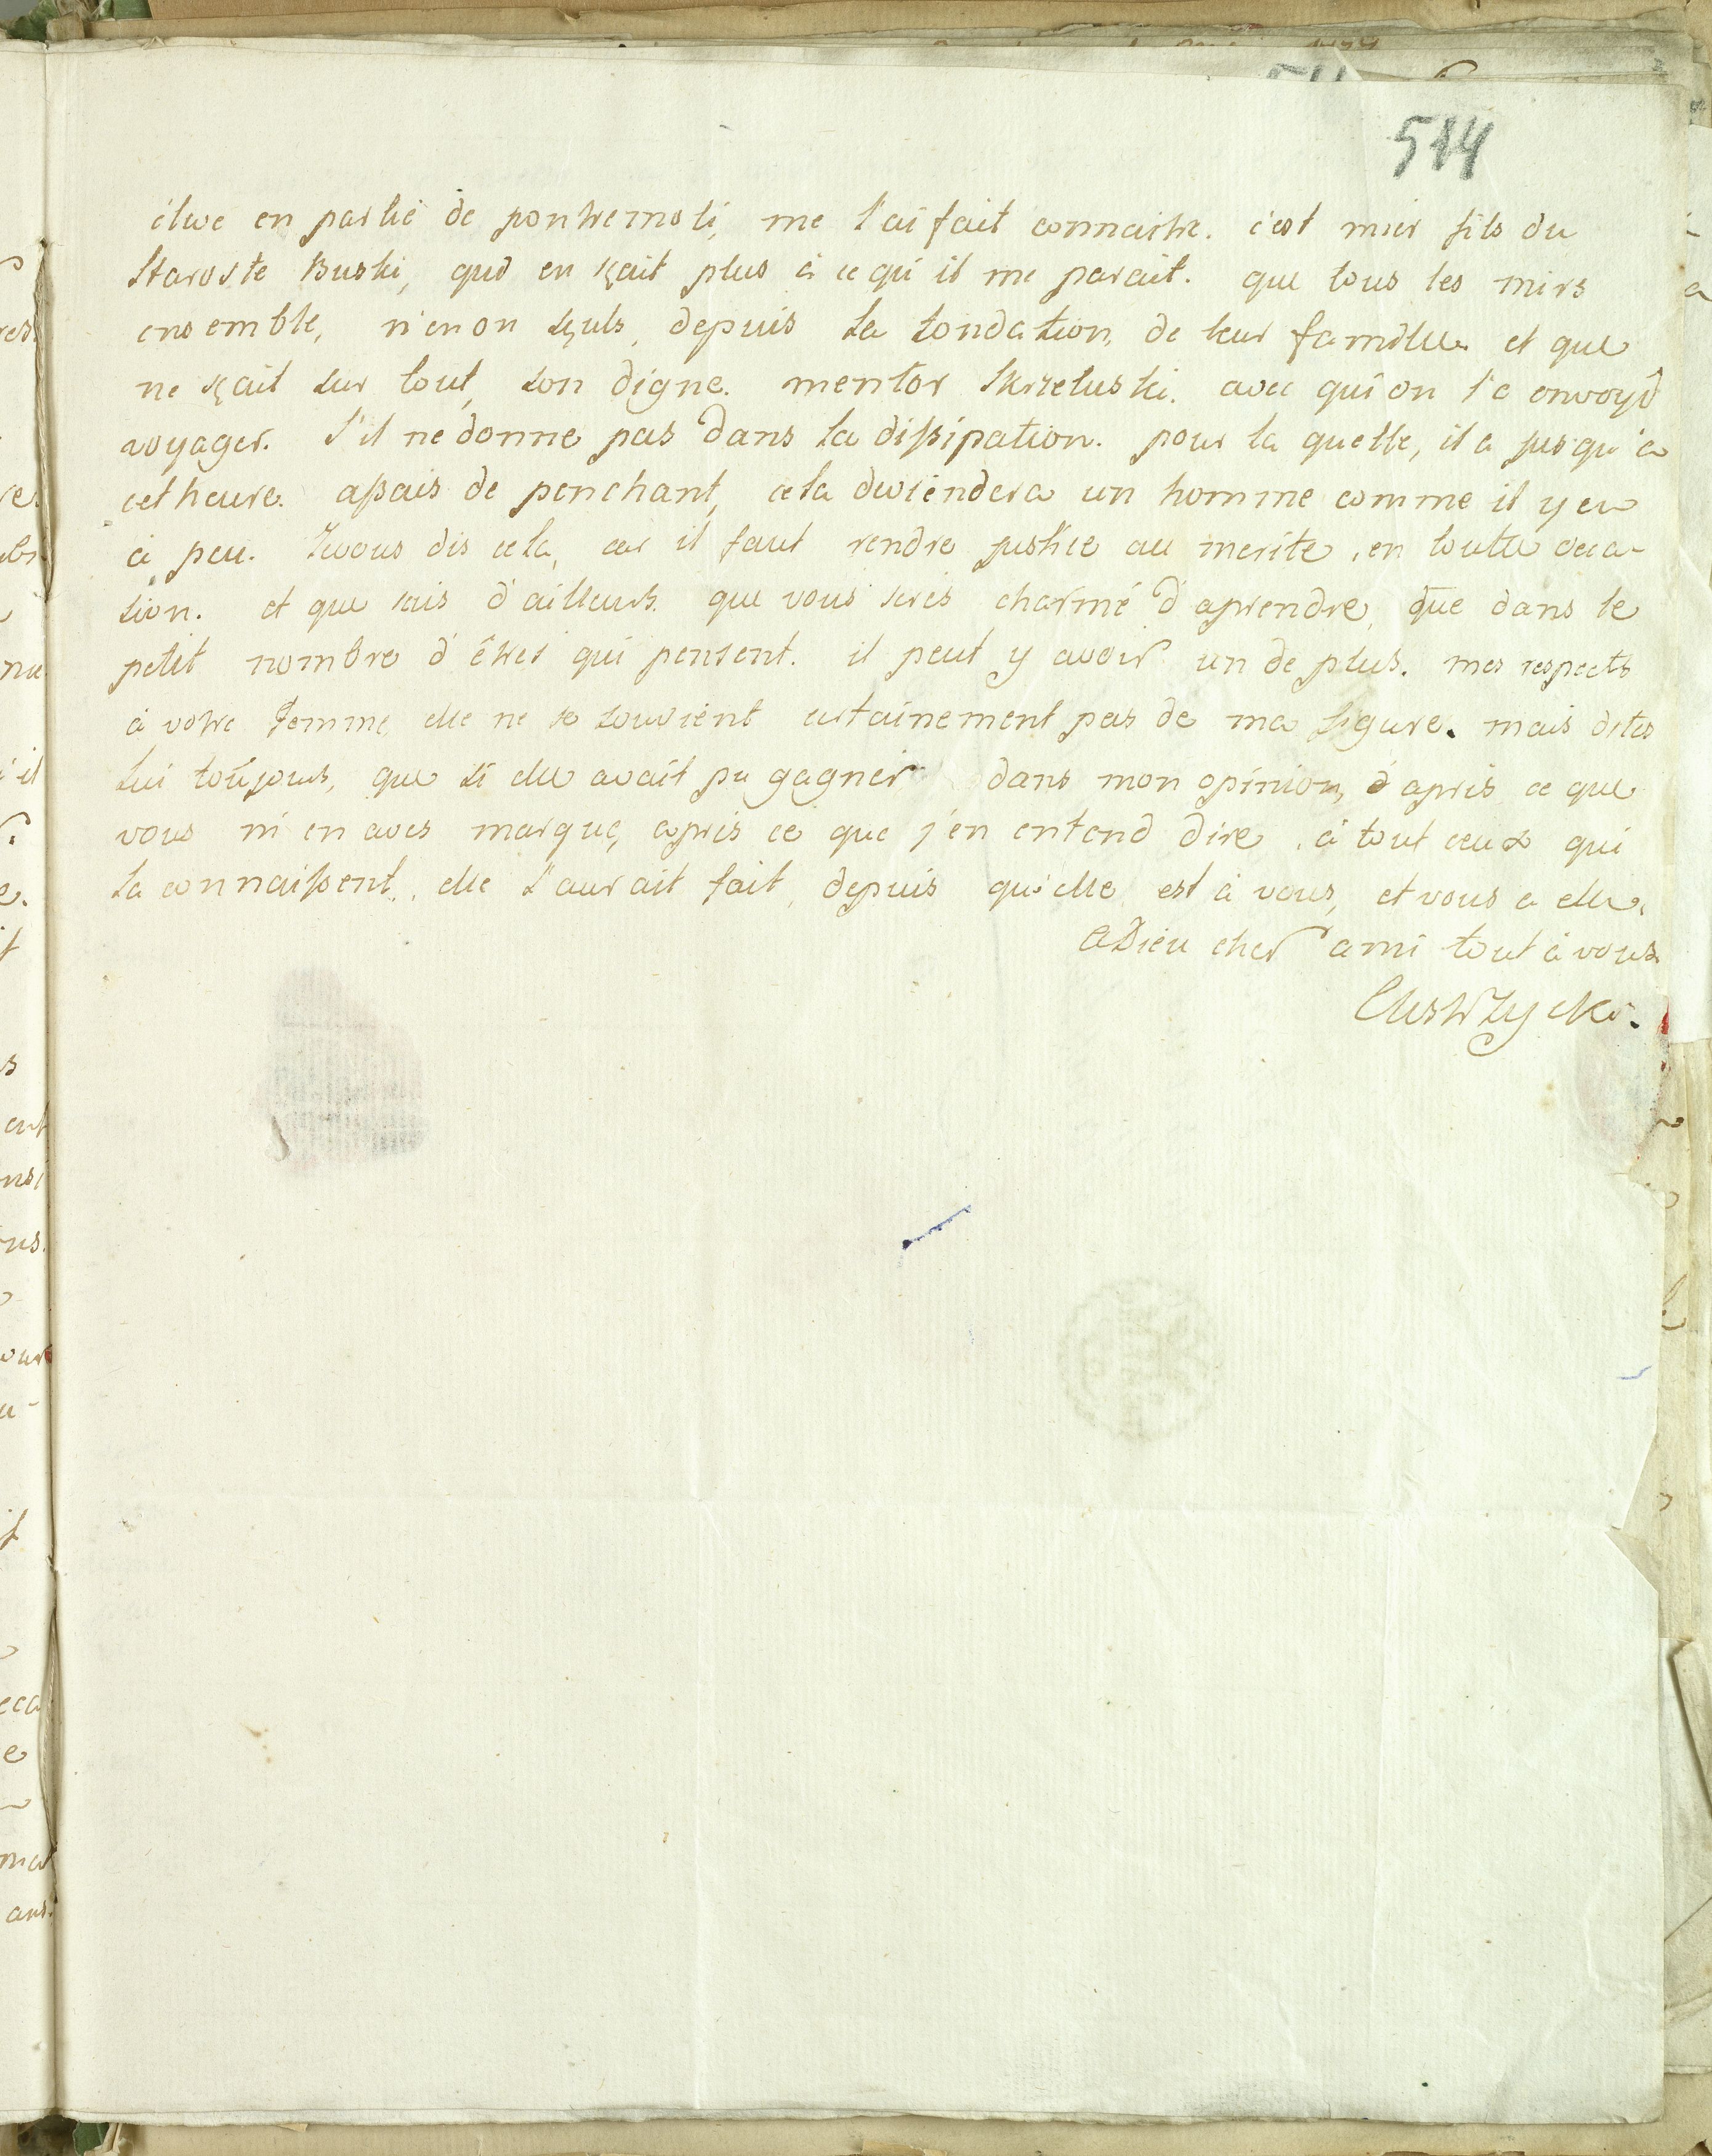 514
élwe en partie de pontremoli, me l'ai fait connaitre. c'est mier fils du
Staroste Buski, qui en sçait plus à ce qu'il me parait. que tous les mirs
ensemble, n'en on sçuls, depuis la fondation, de leur famille et que
ne sçait sur tout, son digne. mentor Skrzetuski. avec qui on l'a envoyé
voyager. S'il ne donne pas dans la dissipation. pour la quelle, il a jusqu'a
cet heure. assais de penchant, cela deviendera un homme comme il y en
à peu. Je vous dis cela, car il faut rendre justice au merite, en toutte occa-
sion. et que sais d'ailleurs. que vous serés charmé d'aprendre, que dans le
petit nombre d'êtres qui pensent. il peut y avoir un de plus. mes respects
à votre femme, elle ne se souvient certainement pas de ma figure. mais dites
lui toujours, que si elle avait pu gagner dans mon opinion, d'apris ce que
vous m'en avés marqué, apris ce que j'en entend dire, à tout ceux qui
la connaissent, elle l'aurait fait, depuis qu'elle est à vous, et vous a elle.
aDieu cher ami tout à vous.